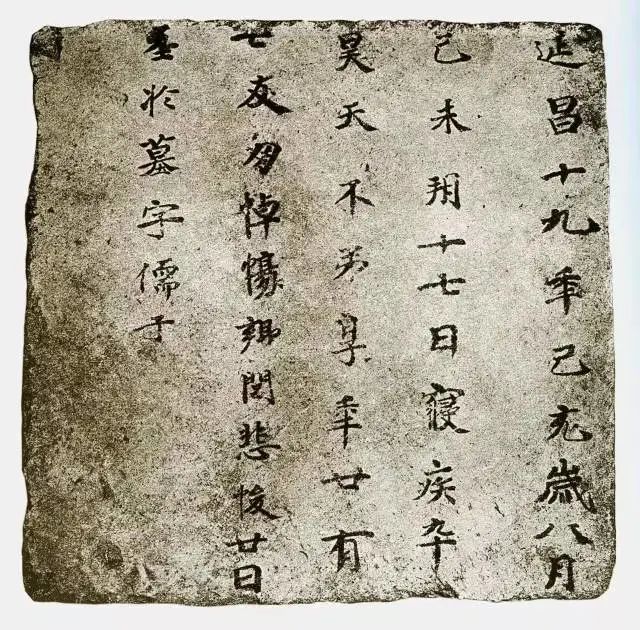 延昌十九年己亥歲八月
己未朔十七日寢疾卒
昊天不弟享年廿有
七友悼傷閔悲悛廿日
於墓字儒子